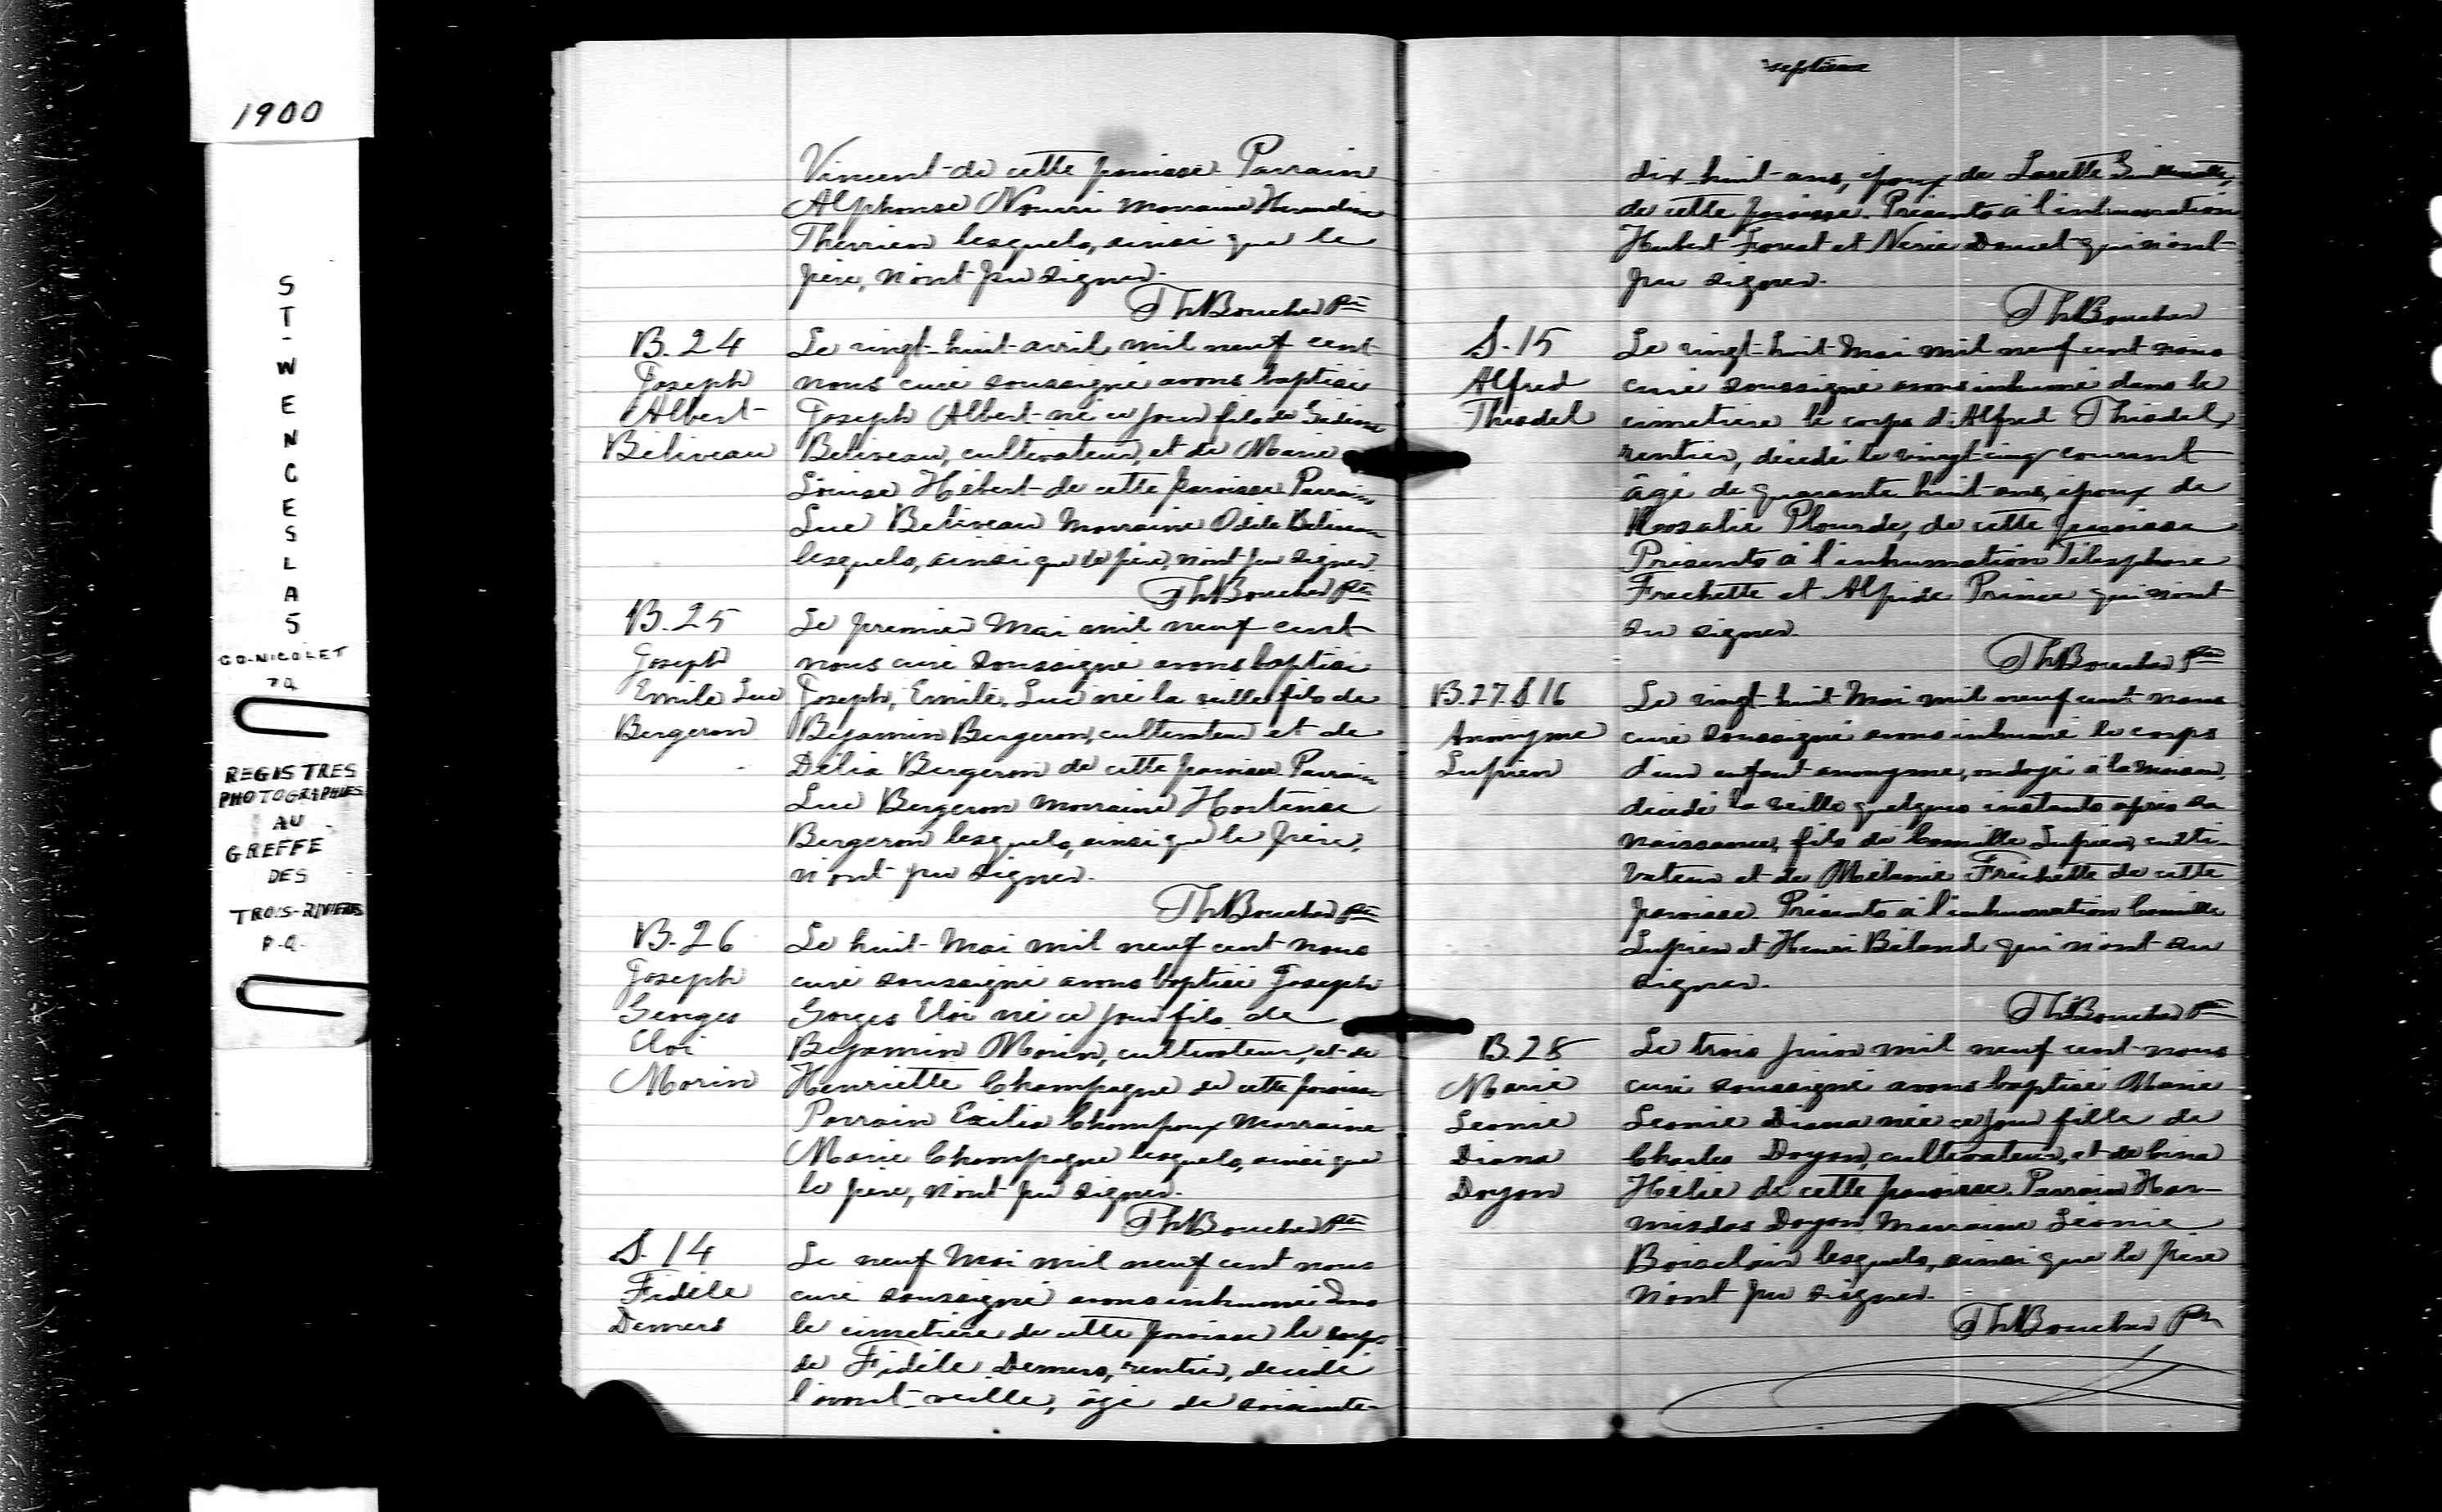 1900
ST-WENCESLAS
CO. NICOLET
REGISTRES
PHOTOGRAPHIES
AU
GREFFE
DES
TROIS-RIVIERES
P.Q.
Vincent de cette paroisse. Parrain
Alphonse Nourri marraine
Therrien lesquels, ainsi que le
père, n'ont pu signer.
Th Boucher Ptre
B. 24
Joseph
Albert
Béliveau
Le vingt-huit avril mil neuf cent
nous curé soussigné avons baptisé
Joseph Albert né ce jour fils de
Béliveau, cultivateur, et de Marie
Louise Hébert de cette paroisse Parrain
Luc Béliveau Marraine Odile Béliveau
lesquels, ainsi que le père, n'ont pu signer.
Th Boucher Ptre
B. 25
Joseph
Emile Luc
Bergeron
Le premier Mai mil neuf cent
nous curé soussigné avons baptisé
Joseph, Emile, Luc né la veille fils de
Bejamin Bergeron, cultivateur et de
Délia Bergeron de cette paroisse. Parrain
Luc Bergeron marraine Hortense
Bergeron lesquels, ainsi que le père,
n'ont pu signer.
Th Boucher Ptre
B. 26
Joseph
Georges
Eloi
Morin
Le huit Mai mil neuf cent nous
curé soussigné avons baptisé Joseph
Gorges Eloi né ce jour fils de
Bejamin Morin, cultivateur, et de
Henriette Champagne de cette paroisse
Parrain Exilia Champoux Marraine
Marie Champagne lesquels, ainsi que
le père, n'ont pu signer.
Th Boucher Ptre
S. 14
Fidèle
Demers
Le neuf Mai mil neuf cent nous
curé soussigné avons inhumé dans
le cimetière de cette paroisse le corps
de Fidèle Demers, rentier, décédé
l'avant-veille, âgé de soixante
septième
dix-huit ans, époux de Lasette
de cette paroisse. Présents à l'inhumation
Hubert Forest et Doucet qui n'ont
pu signer.
Th Boucher
S. 15
Alfred
Thiodel
Le vingt-huit Mai mil neuf cent nous
curé soussigné avons inhumé dans le
cimetière le corps d'Alfred Thiodel,
rentier, décédé le vingt-cinq courant
âgé de quarante huit ans, époux de
Rosalie Plourde, de cette paroisse
Présents à l'inhumation Télesphore
Frechette et Alpide Prince qui n'ont
su signer.
Th Boucher Ptre
B. 27. S 16
Anonyme
Lupien
Le vingt-huit Mai mil neuf cent nous
curé soussigné avons inhumé le corps
d'un enfant anonyme, ondoyé à la maison,
décédé la veille quelques instants après sa
naissance, fils de Camille Lupien, culti-
vateur et de Mélanie Fréchette de cette
paroisse. Présents à l'inhumation Camille
Lupien et Henri Béland qui n'ont su
signer.
Th Boucher Ptre
B. 28
Marie
Leonie
Diana
Doyon
Le trois Juin mil neuf cent nous
curé soussigné avons baptisé Marie
Leonie Diana née ce jour fille de
Charles Doyon, cultivateur, et de Cina
Hélie de cette paroisse. Parrain Hor-
misdas Doyon Marraine Léonie
Boisclair lesquels, ainsi que le père
n'ont pu signer.
Th Boucher Ptre